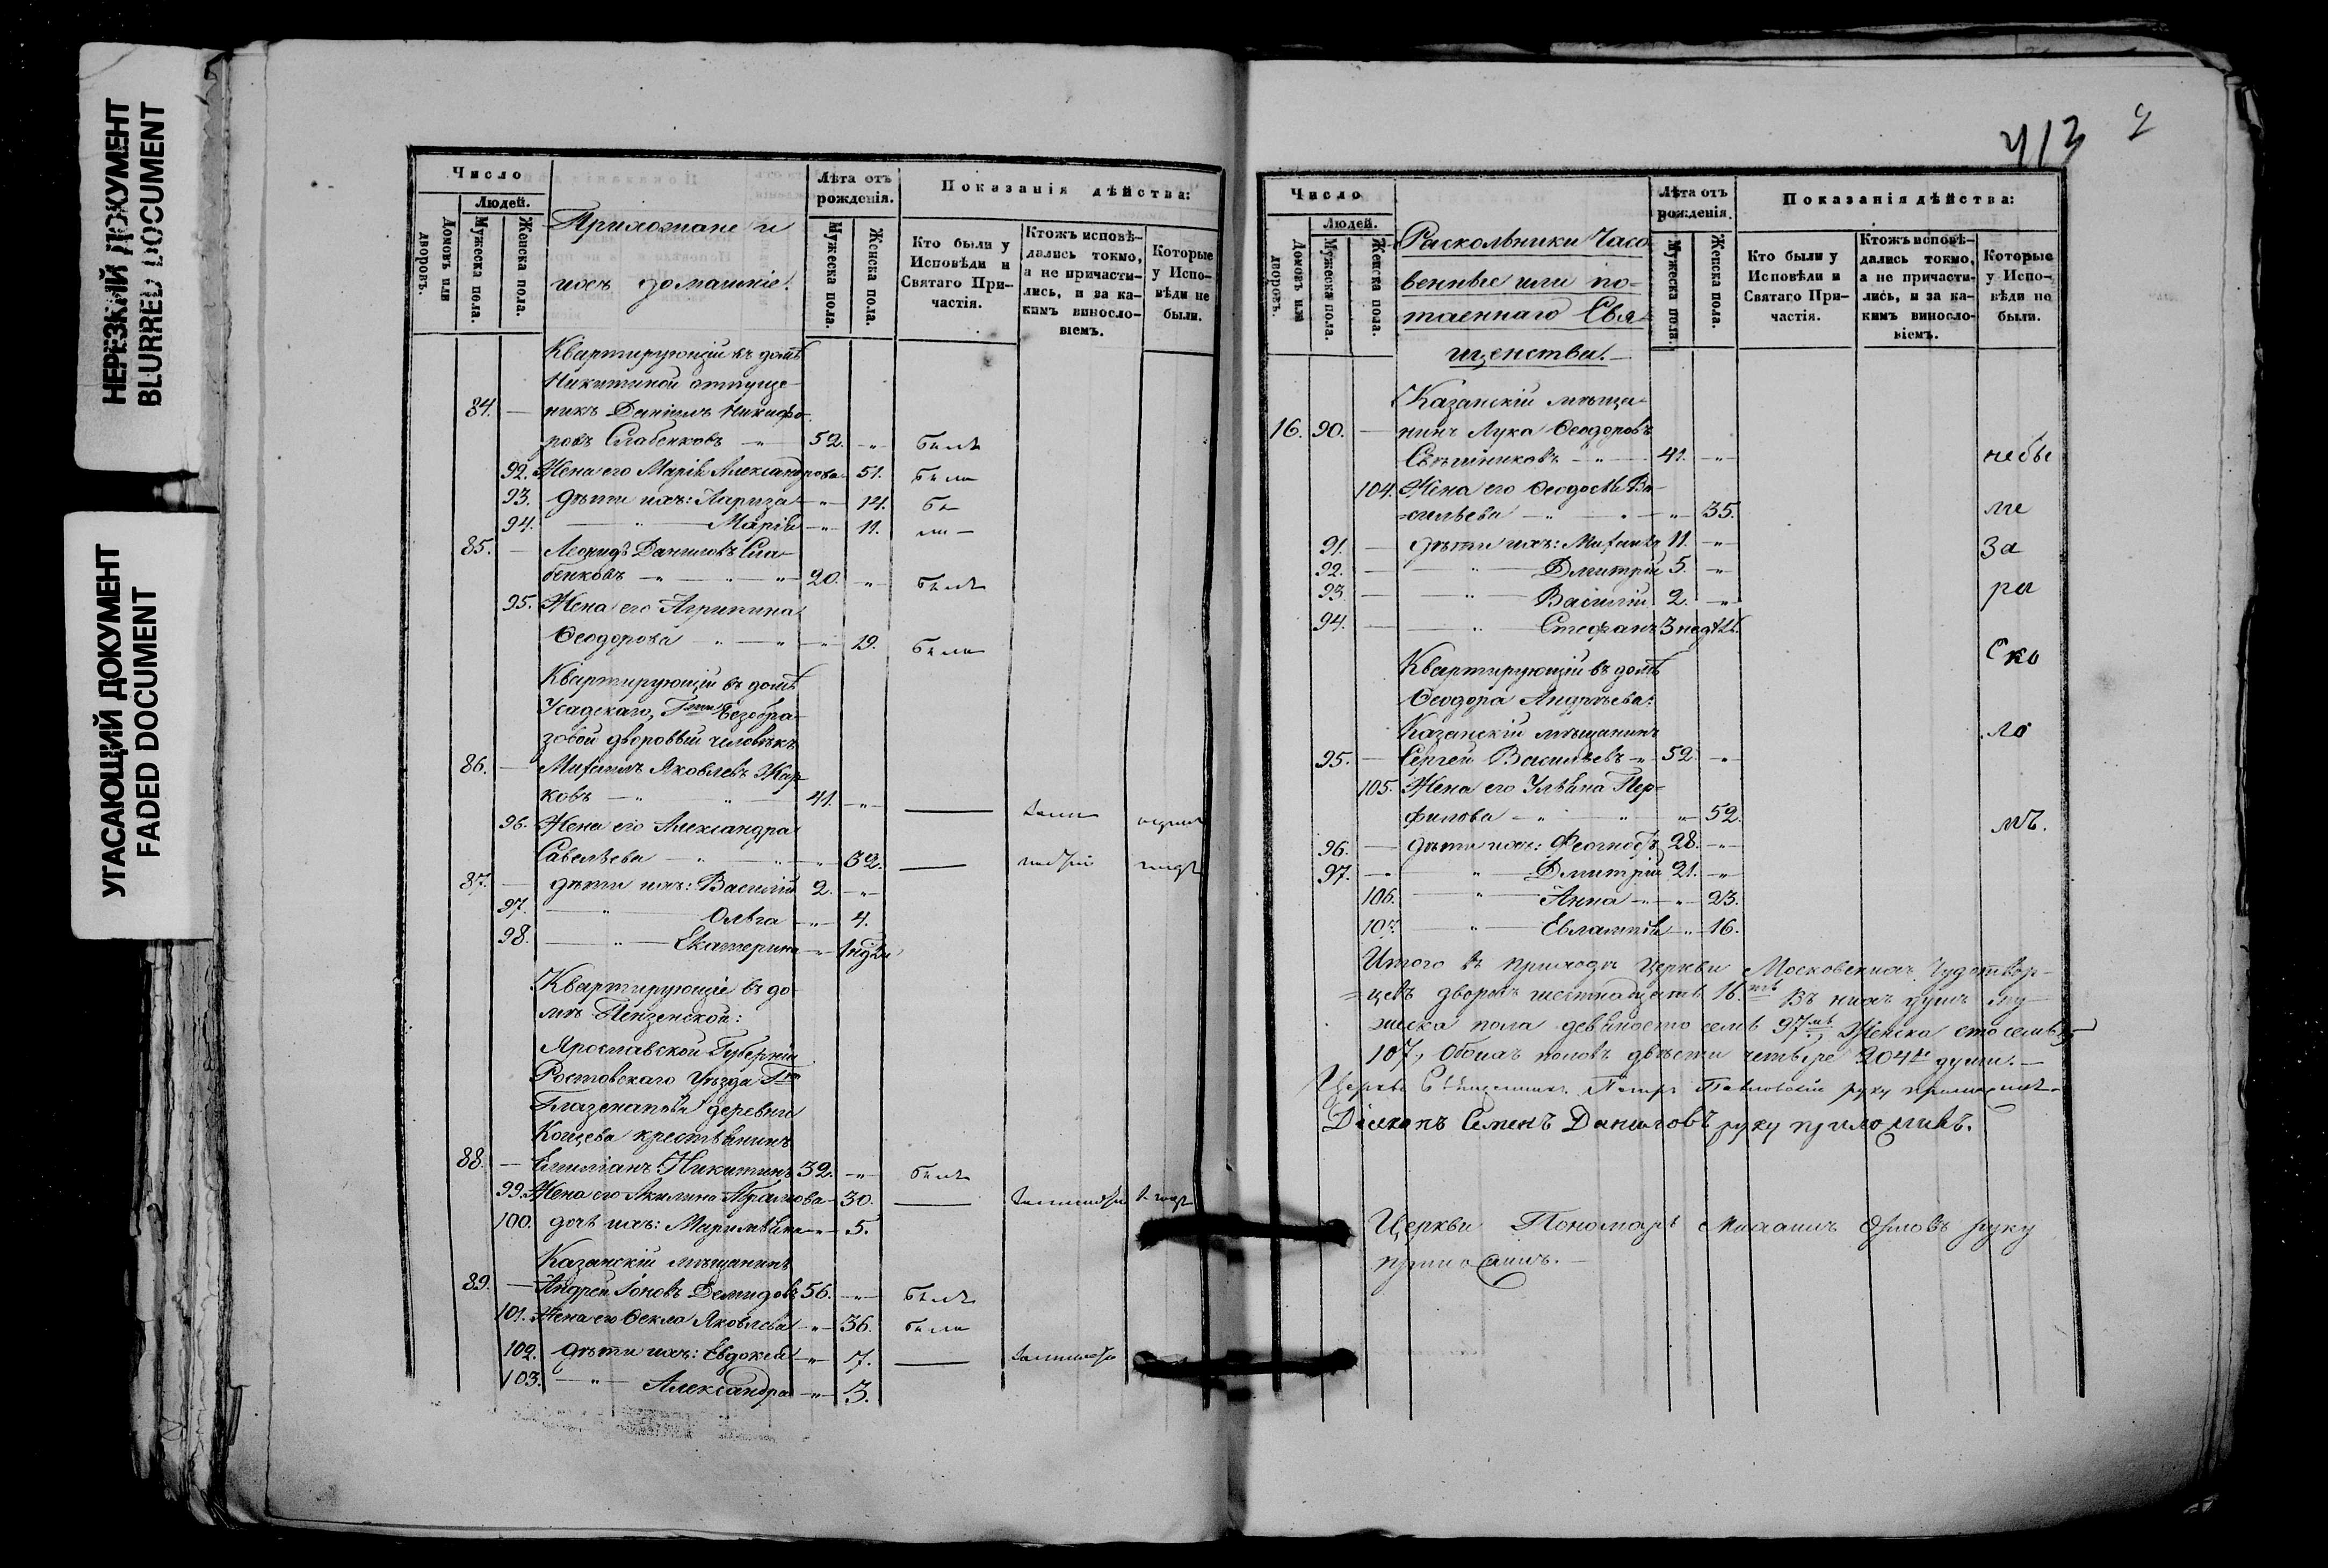 НЕРЕЗКИЙ ДОКУМЕНТ
BLURRED DOCUMENT
УГАСАЮЩИЙ ДОКУМЕНТ
FADED DOCUMENT
Число
Людей.
Домовъ или дворовъ.
Мужеска пола.
Женска пола.
Прихожане и
ихъ домашніе.
Лѣта отъ рожденія.
Мужеска пола.
Женска пола.
Показанія дѣйства:
Кто были у Исповѣди и Святаго Причастія.
Ктожъ исповѣдались токмо, а не причастились, и за какимъ винословіемъ.
Которые у Исповѣди не были.
Квартирующій въ домѣ
Никитиной отпуще-
84. — никъ Даніилъ Никифо-
ровъ Слабенковъ — 52. „ былъ
92. Жена его Марія Александрова 51. была
93. дѣти ихъ: Лариза — „ — 14. бы
94. — „ — Марія — „ — 11. ли —
85. — Леонидъ Даниловъ Сла-
бенковъ — „ — „ — 20. „ былъ
95. Жена его Агрипина
Ѳеодорова — „ — „ — 19. была
Квартирующій въ домѣ
Усадскаго, Гжи Безобра-
зовой дворовый человѣкъ
86. — Михаилъ Яковлевъ Жар-
ковъ — „ „ — 41. „ —
96. Жена его Александра
Савельева — „ — „ — 32. —
87. — дѣти ихъ: Василій 2. „
97. — „ — Ольга — „ — 4.
98. — „ — Екатерина — „
Квартирующіе въ до-
мѣ Пензенской:
Ярославской Губерніи
Ростовскаго Уѣзда Гжи
Глазенапъ деревни
крестьянинъ
88. — Емиліанъ Никитинъ 32. „ былъ
99. Жена его Акилина Абрамова 30. —
100. дочь ихъ: Маримьяна — „ — 5.
Казанскій мѣщанинъ
89. — Андрей Іоновъ Демидовъ 56. — былъ
101. Жена его Ѳекла Яковлева — „ — 36. была
102. дѣти ихъ: Евдокія — „ — 7. —
103. — „ — Александра — „ — 3.
413
Число
Людей.
Домовъ или дворовъ.
Мужеска пола.
Женска пола.
Раскольники Часо
венные или по-
таеннаго Свя-
щенства. —
Лѣта отъ рожденія.
Мужеска пола.
Женска пола.
Показанія дѣйства:
Кто были у Исповѣди и Святаго Причастія.
Ктожъ исповѣдались токмо, а не причастились, и за какимъ винословіемъ.
Которые у Исповѣди не были.
Казанскій мѣща-
16. 90. — нинъ Лука Ѳеодоровъ
Свѣшниковъ — „ — 41. „ небы
104. Жена его Ѳеодосья Ва-
сильева — „ — „ — „ — 35. ли
91. — дѣти ихъ: Михаилъ 11. „ за
92. — „ — Дмитрій 5. „
93. — „ — Василій 2. „ ра
94. — „ — Стефанъ 3 недѣли
ско
Квартирующій въ домѣ
Ѳеодора Андреева:
Казанскій мѣщанинъ ло
95. — Сергей Васильевъ „ 52. „
105. Жена его Ульяна Пер-
филова — „ „ „ 52. мъ.
96. — дѣти ихъ: Феогностъ 28. „
97. — „ — Дмитрій 21. „
106. — „ — Анна — „ — 23.
107. — „ — Евлампія „ 16.
Итого въ приходѣ Церкви Московскихъ Чудотвор-
цевъ дворовъ шестнадцать 16.ть Въ нихъ душъ му-
жеска пола девяносто семь 97мь, Женска сто семь
107, Обоихъ половъ двѣсти четыре 204ре души. —
Церкви Священникъ Петръ Павловскій руку приложилъ
Діаконъ Семенъ Даниловъ руку приложилъ.
Церкви Пономарь Михаилъ Орловъ руку
приложилъ. —